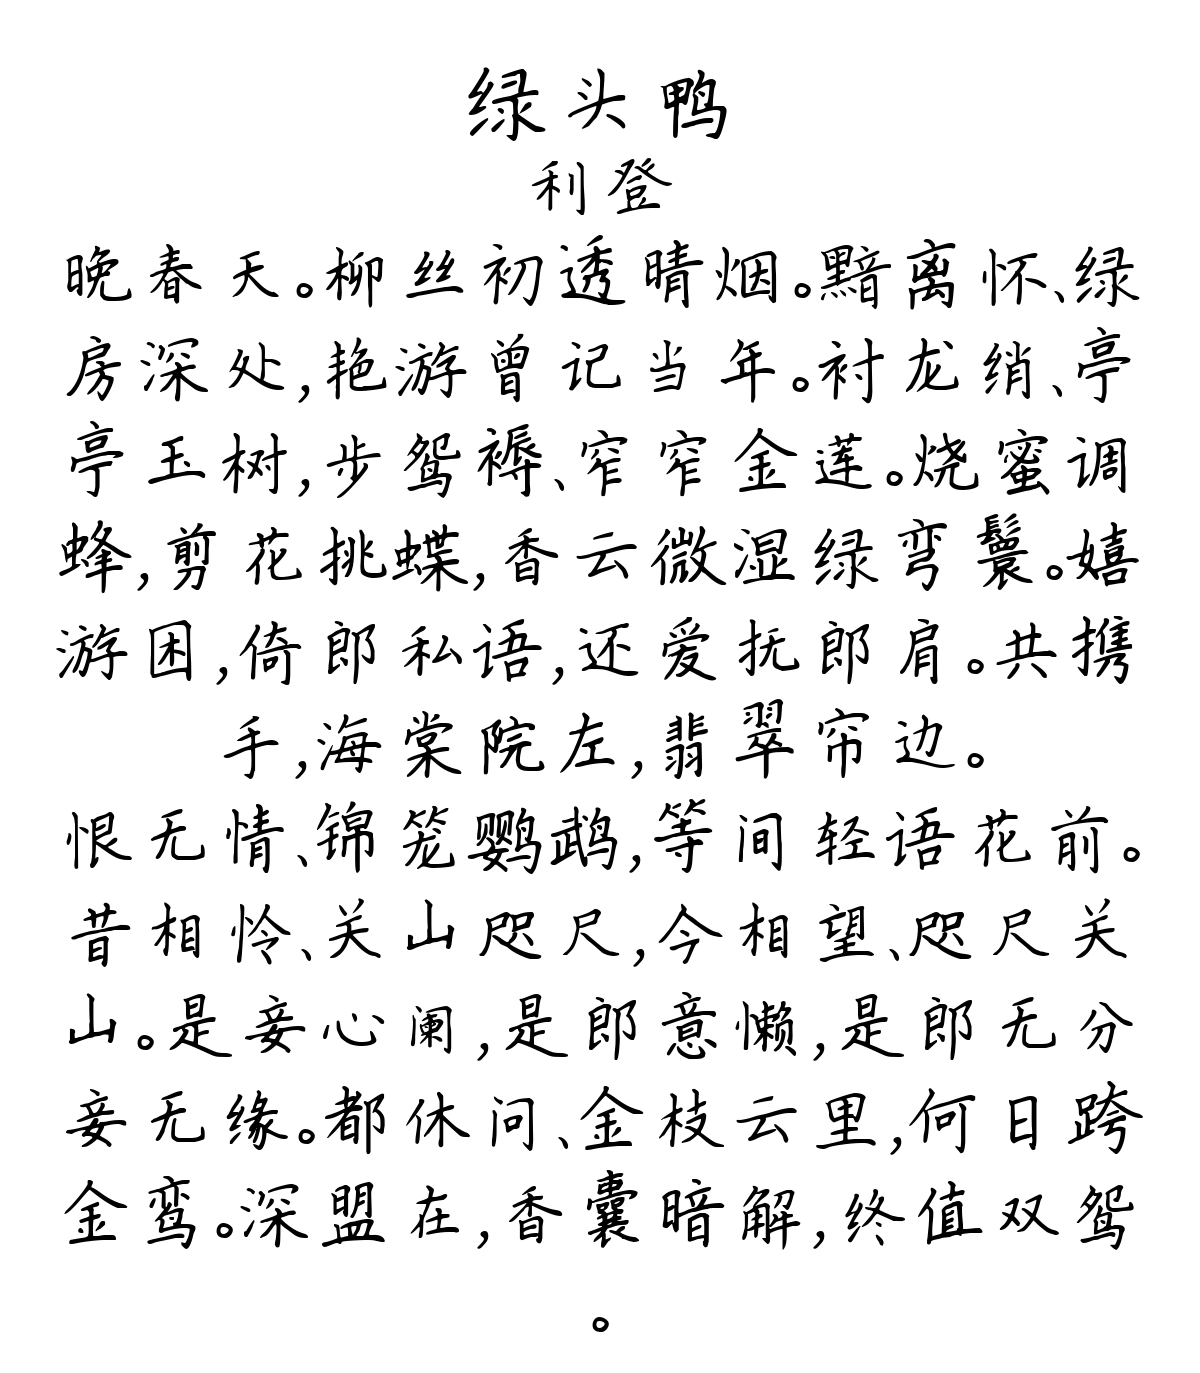 绿头鸭
利登
晚春天。柳丝初透晴烟。黯离怀、绿
房深处,艳游曾记当年。衬龙绡、亭
亭玉树,步鸳褥、窄窄金莲。烧蜜调
蜂,剪花挑蝶,香云微湿绿弯鬟。嬉
游困,倚郎私语,还爱抚郎肩。共携
手,海棠院左,翡翠帘边。
恨无情、锦笼鹦鹉,等间轻语花前。
昔相怜、关山咫尺,今相望、咫尺关
山。是妾心阑,是郎意懒,是郎无分
妾无缘。都休问、金枝云里,何日跨
金鸾。深盟在,香囊暗解,终值双鸳
。